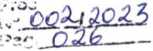 002,2023
026